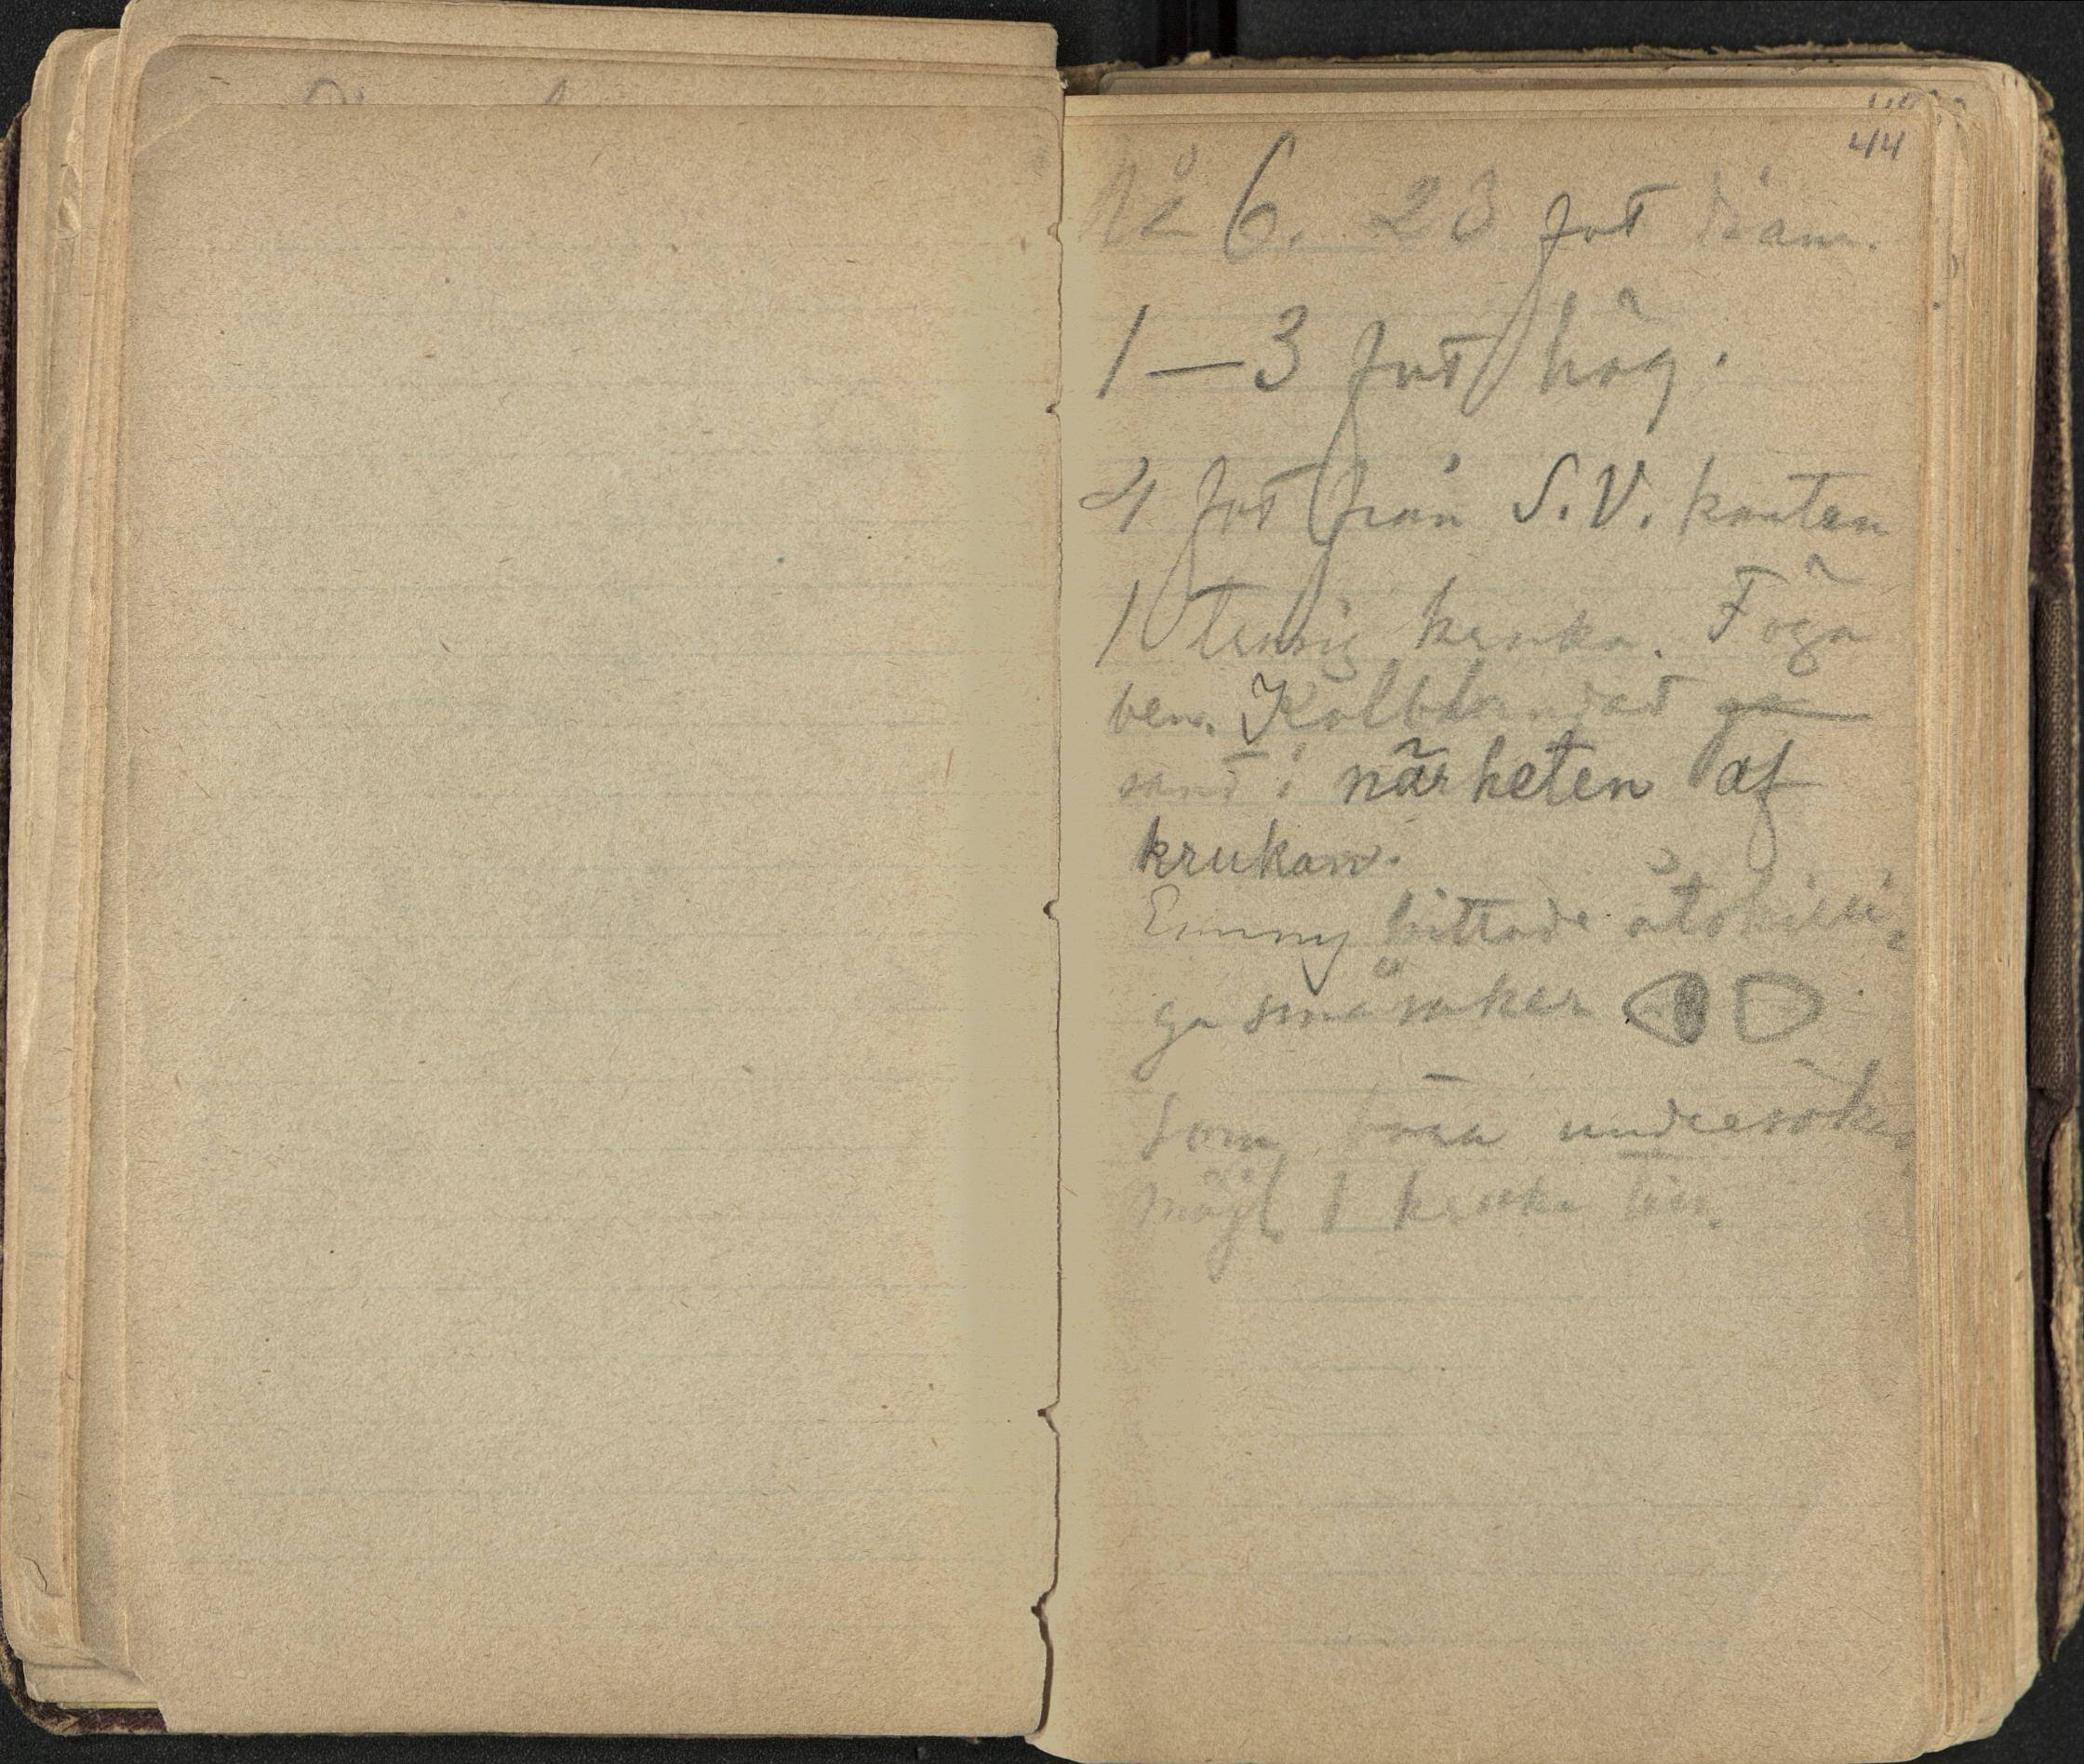 44
No 6. 23 fot diam.
1—3 fot hög.
4 fot från S.V. kanten
1 trasig kruka. Föga
ben. Kolblandad
sand i närheten af
krukan.
Emmy hittade åtskilli-
ga småsaker
som böra undersökas
Möjl 1 kruka till.